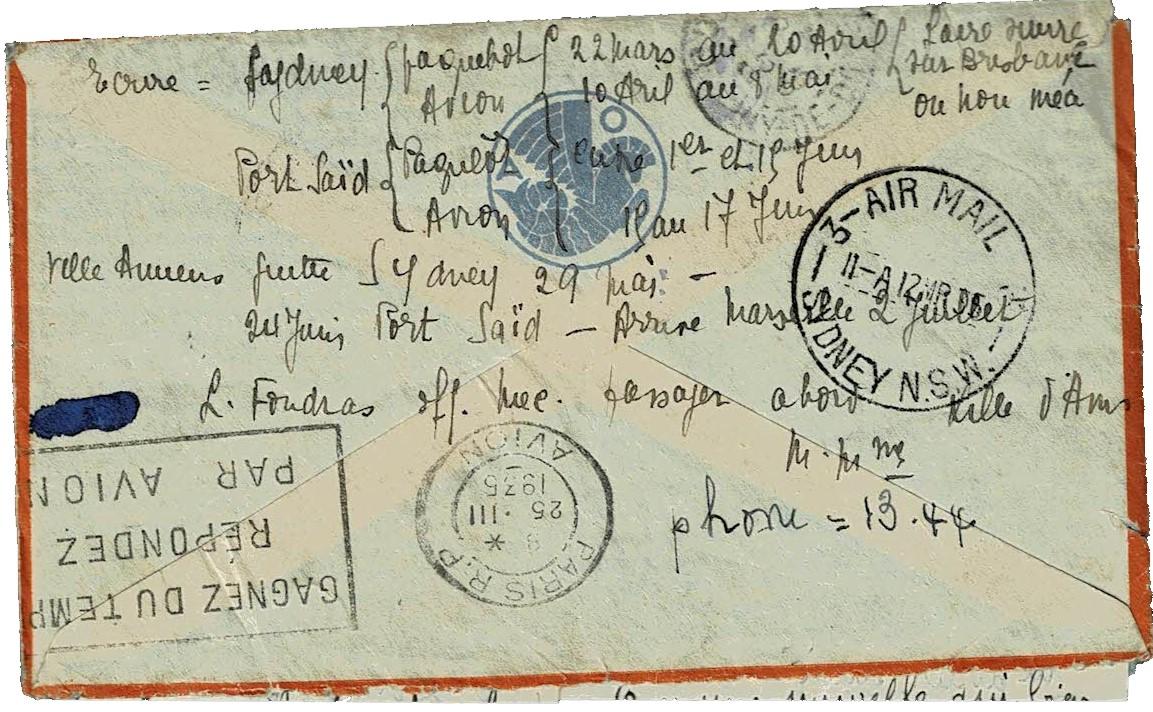 Ecrire = Sydney { paquebot { 22 mars au 20 Avril { faire suivre
Avion 10 Avril au 8 Mai sur Brisbane
ou Nouméa
Port Saïd { Paquebot { entre 1er et 15 Juin
Avion 10 au 17 Juin
Ville Amiens quitte Sydney 29 Mai -
24 Juin Port Saïd - Arrive Marseille 2 Juillet
L. Foudras off. Mec. passager abord Ville d'Ams
M. M
phone = 13.44
3-AIR MAIL
11-A 12 MR 35
SYDNEY N.S.W.
PARIS R.P.
AVION
9 *
25 · III
1935
GAGNEZ DU TEMP
RÉPONDEZ
PAR AVION
nouvelle